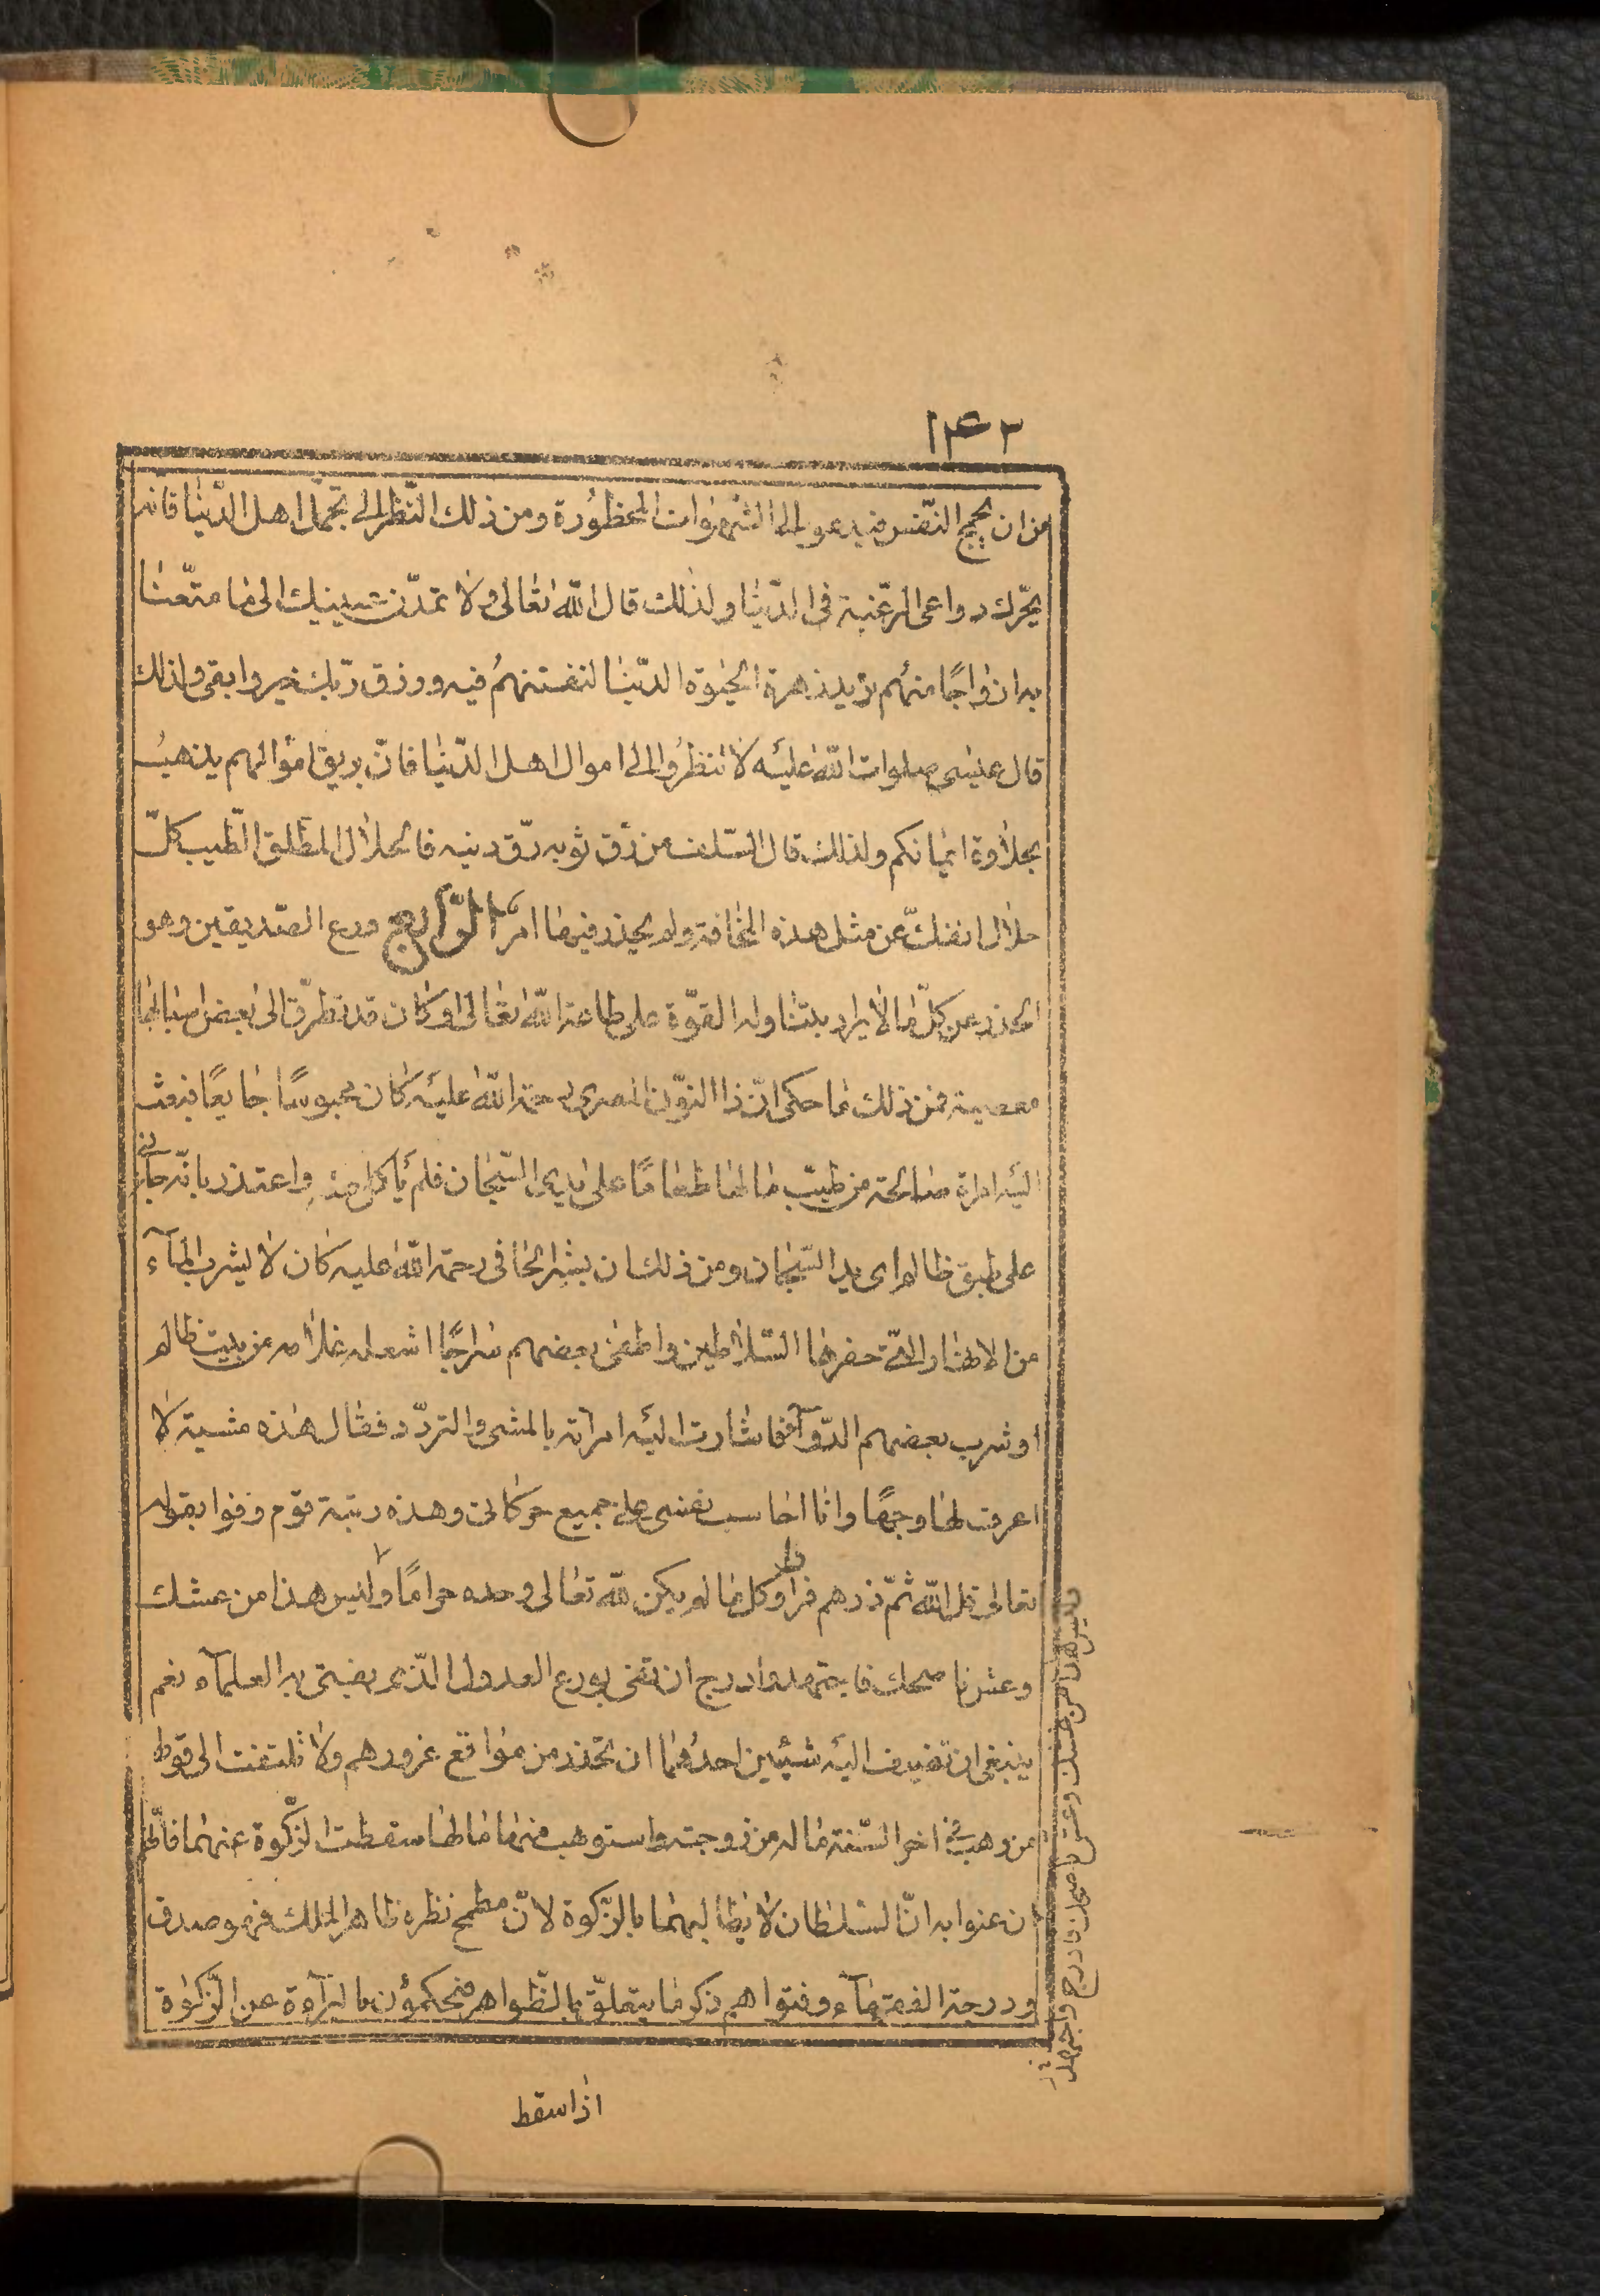 ١٤٢
من ان يهيج النّفس فيدعو الى الشّهوات المحظورة ومن ذلك النّظر الى تجمّل اهل الدّنيا فانه
يحرّك دواعى الرّغبة فى الدّنيا ولذلك قال اللّه تعالى ولا تمدّن عينيك الى ما متّعنا
به ازواجًا منهم زهرة الحيوة الدّنيا لنفتنهم فيه ورزق ربّك خير وابقى ولذلك
قال عيسى صلوات اللّه عليه لا تنظروا الى اموال اهل الدّنيا فانّ بريق اموالهم يذهب
بحلاوة ايمانكم ولذلك قال السّلف من رقّ ثوبه رقّ دينه فالحلال المطلق الطّيب كلّ
حلال انفكّ عن مثل هذه المخافة ولم يحذر فيها امرًا الرّابع ورع الصّديقين وهو
الحذر عن كلّ ما لا يراد بتناوله القوّة على طاعة اللّه تعالى او كان قد تطرّق الى بعض اسبابها
معصية فمن ذلك ما حكى انّ ذا النّون المصرى رحمة اللّه عليه كان محبوسًا جايعًا فبعثت
اليه امراة صالحة من طيّب مالها طعامًا على يدى السّجان فلم يأكل منه واعتذر بانّه جائنى
على طبق ظالم اى يد السّجان ومن ذلك ان بشر الحافى رحمة اللّه عليه كان لا يشرب الماء
من الانهار الّتى حفرها السّلاطين واطفى بعضهم سراجًا اشعله غلامه من بيت ظالم
او شرب بعضهم الدّواء فاشارت اليه امراته بالمشى والتردّد فقال هذه مشية لا
اعرف لها وجهًا وانا احاسب نفسى على جميع حركاتى وهذه رتبة قوم وفوا بقوله
تعالى قل اللّه ثمّ ذرهم فرأوا كل ما لم يكن للّه تعالى وحده حرامًا وليس هذا من عشك
وعش ناصحك فاجتهد وادرج ان تفى بورع العدول الّذى يفتى به العلماء نعم
ينبغى ان تضيف اليه شيئين احدهما ان تحذر من مواقع غرورهم ولا تلتفت الى قولهم
من وهب فى اخر السّنة ماله من زوجته واستوهب منها مالها سقطت الزّكوة عنهما فانّهم
ان عنوا به انّ السّلطان لا يطالبهما بالزّكوة لانّ مطمح نظره ظاهر الملك فهو صدق
ودرجة الفقهاء وفتواهم ذكر ما يتعلّق بالظّواهر فيحكمون بالبراءة عن الزّكوة
وليس هذا من عشك وعش ناصحك فادرج واجتهد
اذا سقط